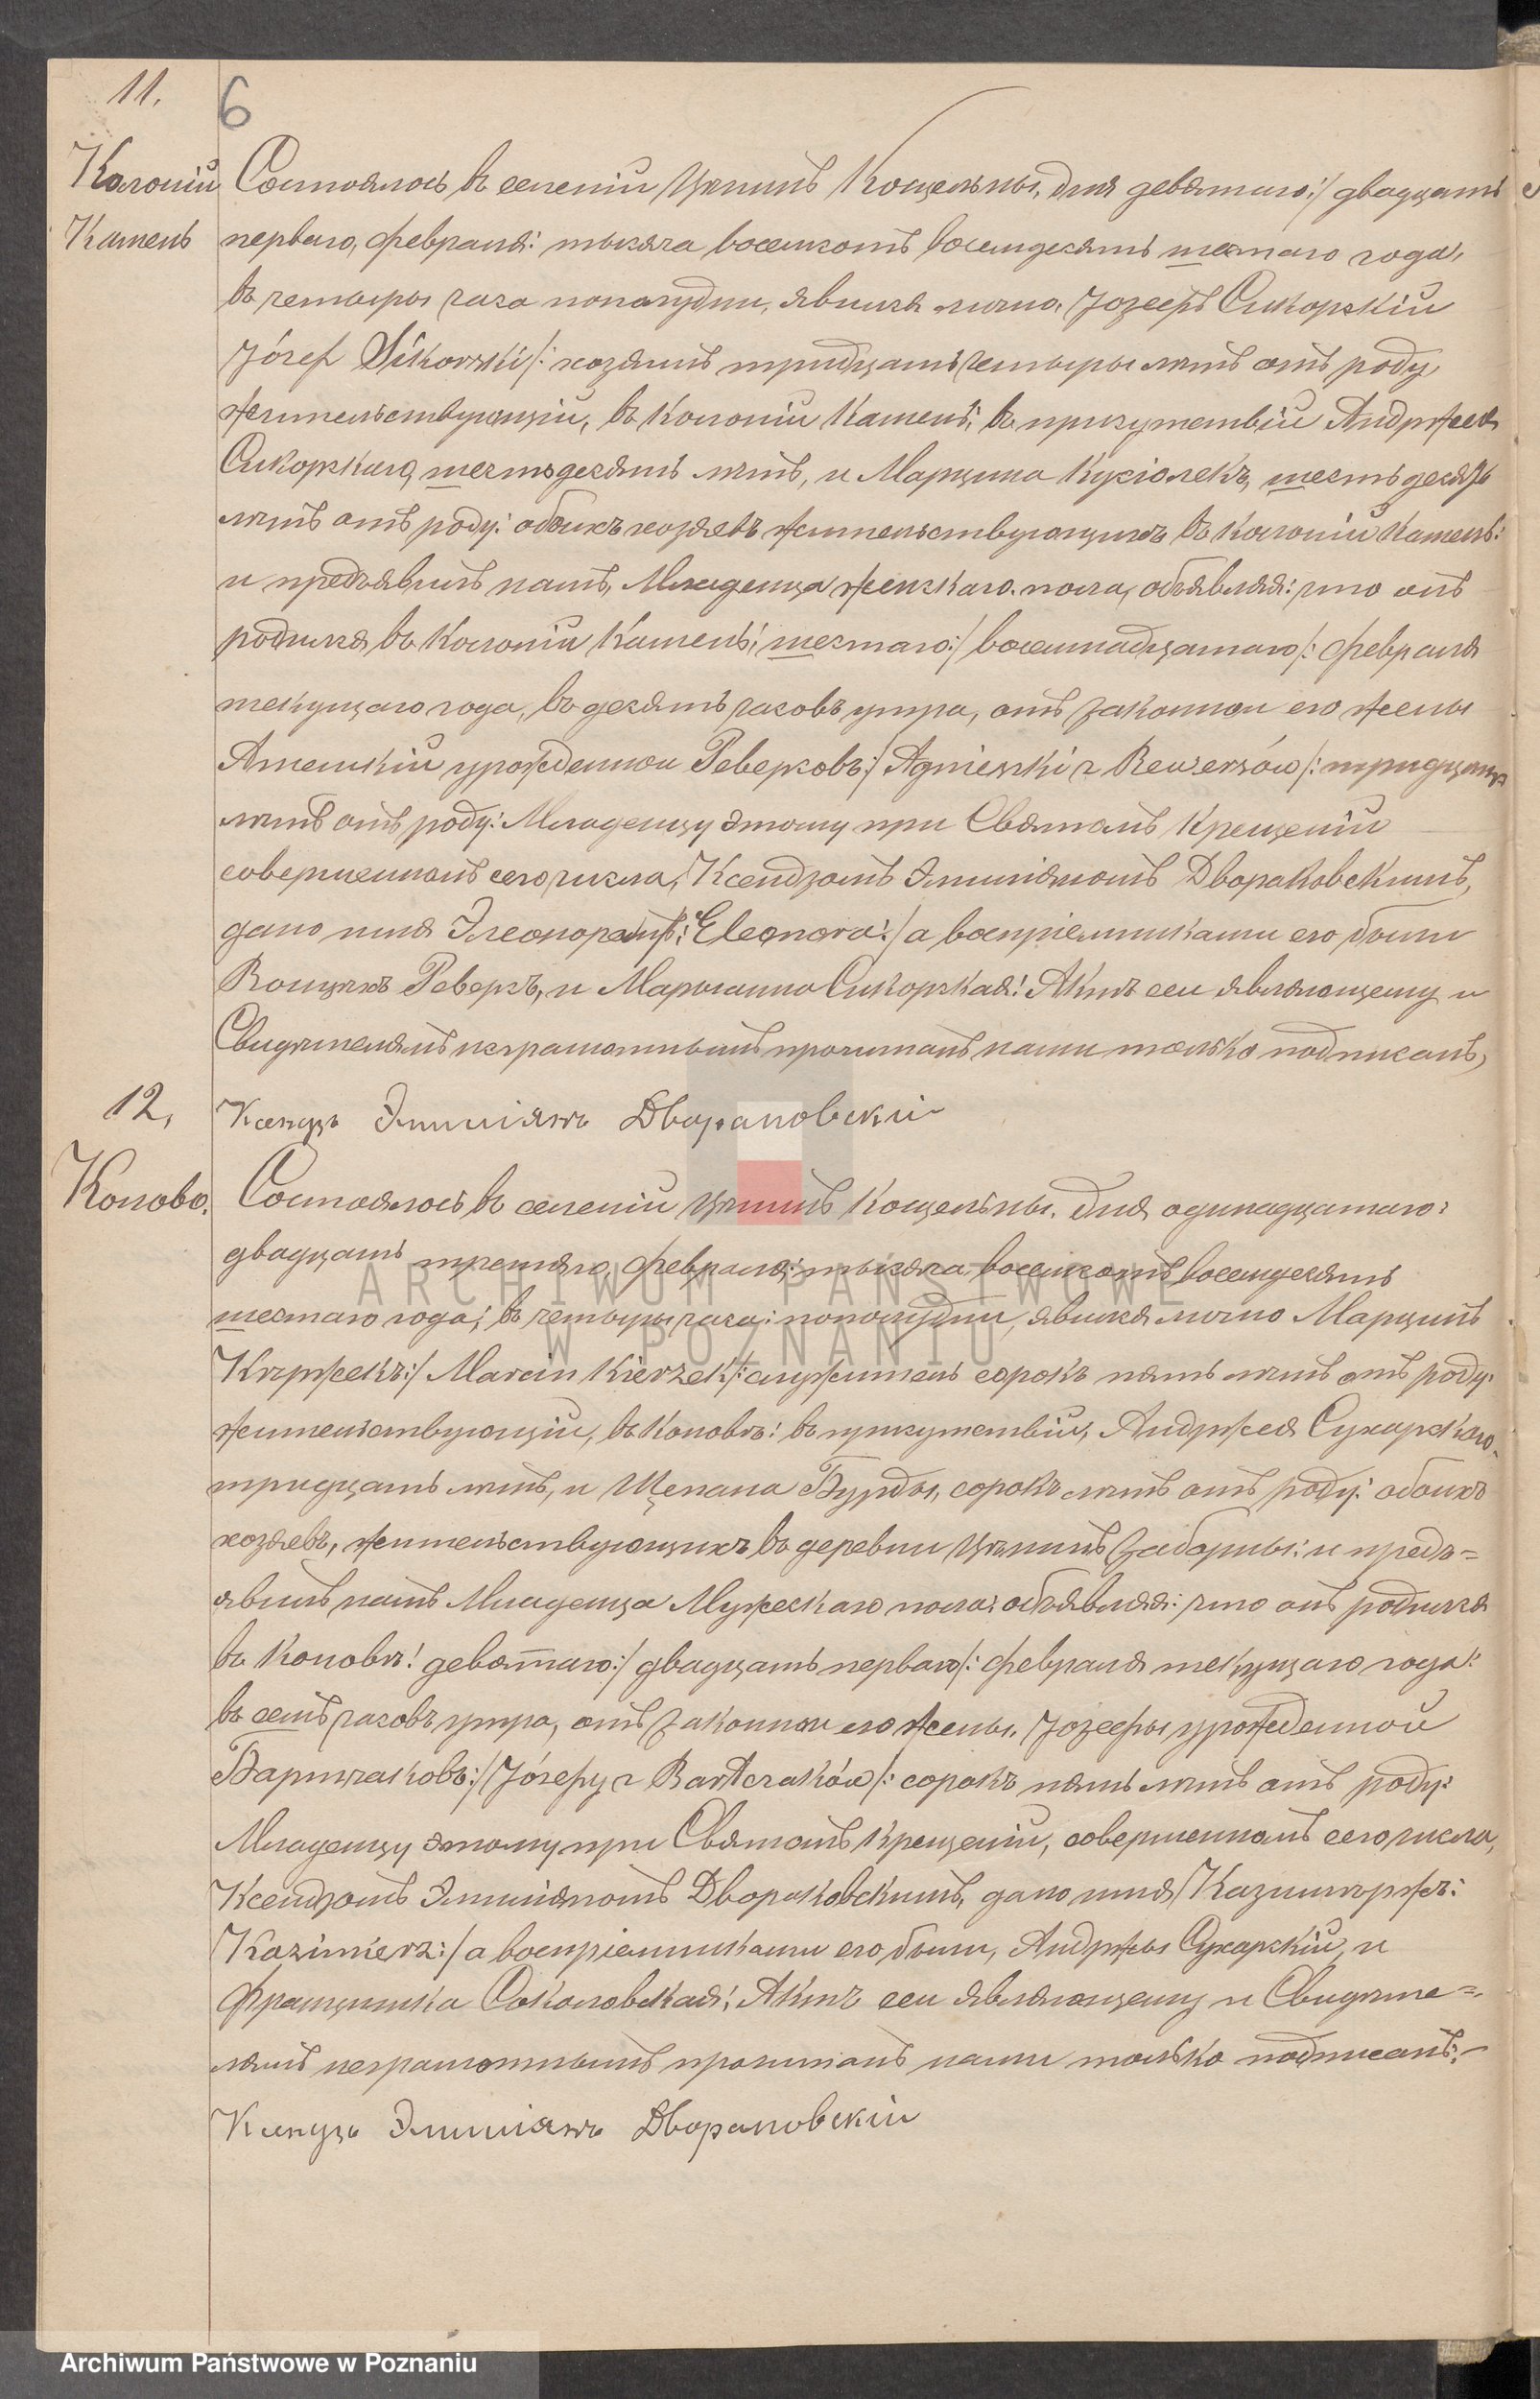 11.
6
Колонiи
Камень
Состоялось въ селенiи Цѣнинъ Косцельны, дня девятаго:/ двадцать
перваго, февраля: тысяча восемсотъ восемдесятъ шестаго года,
въ четыры часа пополудни, явился лично, Јозефъ Сикорскiй
Józef Sikorski/: хозяинъ тридцать четыры лѣтъ отъ роду
жительствующiй, въ Колонiи Камень; въ присутствiи Андржея
Сикорскаго, шестьдесятъ лѣтъ, и Марцина Кусiолекъ, шестьдесятъ
лѣтъ отъ роду: обоихъ хозяевъ жительствующихъ въ Колонiи Камень:
и предъявилъ намъ, Младенца женскаго пола, объявляя: что онъ
родился въ Колонiи Камень; шестаго:/ восемнадцатаго/: февраля
текущаго года, въ десять часовъ утра, отъ законнои его жены
Агнешкiй урожденнои Реверсовъ:/ Agnieszki z Rewersów/: тридцать
лѣтъ отъ роду: Младенцу этому при Святомъ Крещенiи
совершенномъ сего числа, Ксендзомъ Эмилiяномъ Двораковскимъ,
дано имя Элеонора: Eleonora:/ а воспрiемниками его были
Войцѣхъ Реверсъ, и Марыанна Сикорская: Актъ сеи являющему и
Свидѣтелямъ неграмотнымъ прочитанъ нами только подписанъ,
12,
Ксендзъ Эмилiянъ Двораковскiй
Коново.
Состоялось въ селенiи Цѣнинъ Косцельны, дня одинадцатаго:
двадцать третяго, февраля: тысяча восемсотъ восемдесятъ
шестаго года; въ четыры часа: пополудни, явился лично Марцинъ
Кѣржекъ:/ Marcin Kierzek/: служитель сорокъ пять лѣтъ отъ роду:
жительствующiй, въ Коновѣ: въ присутствiи, Андржея Сухарскаго,
тридцать лѣтъ, и Щепана Бурды, сорокъ лѣтъ отъ роду: обоихъ
хозяевъ, жительствующихъ въ деревни Цѣнинъ Заборны: и предъ=
явилъ намъ Младенца Мужескаго пола: объявляя: что онъ родился
въ Коновѣ: девятаго:/ двадцать перваго/: февраля текущаго года:
въ семь часовъ утра, отъ законнои его жены, Јозефы урожденной
Бартчаковъ:/ Józefy z Bartczaków/: сорокъ пять лѣтъ отъ роду:
Младенцу этому при Святомъ Крещенiи, совершенномъ сего числа,
Ксендзомъ Эмилiяномъ Двораковскимъ, дано имя Казимѣржъ:
Kazimierz:/ а воспрiемниками его были, Андржы Сухарскiй, и
Францишка Соколовская: Актъ сеи являющему и Свидѣте=
лямъ неграмотнымъ прочитанъ нами только подписанъ:-
Ксендзъ Эмилiянъ Двораковскiй
ARCHIWUM PAŃSTWOWE
W POZNANIU
Archiwum Państwowe w Poznaniu